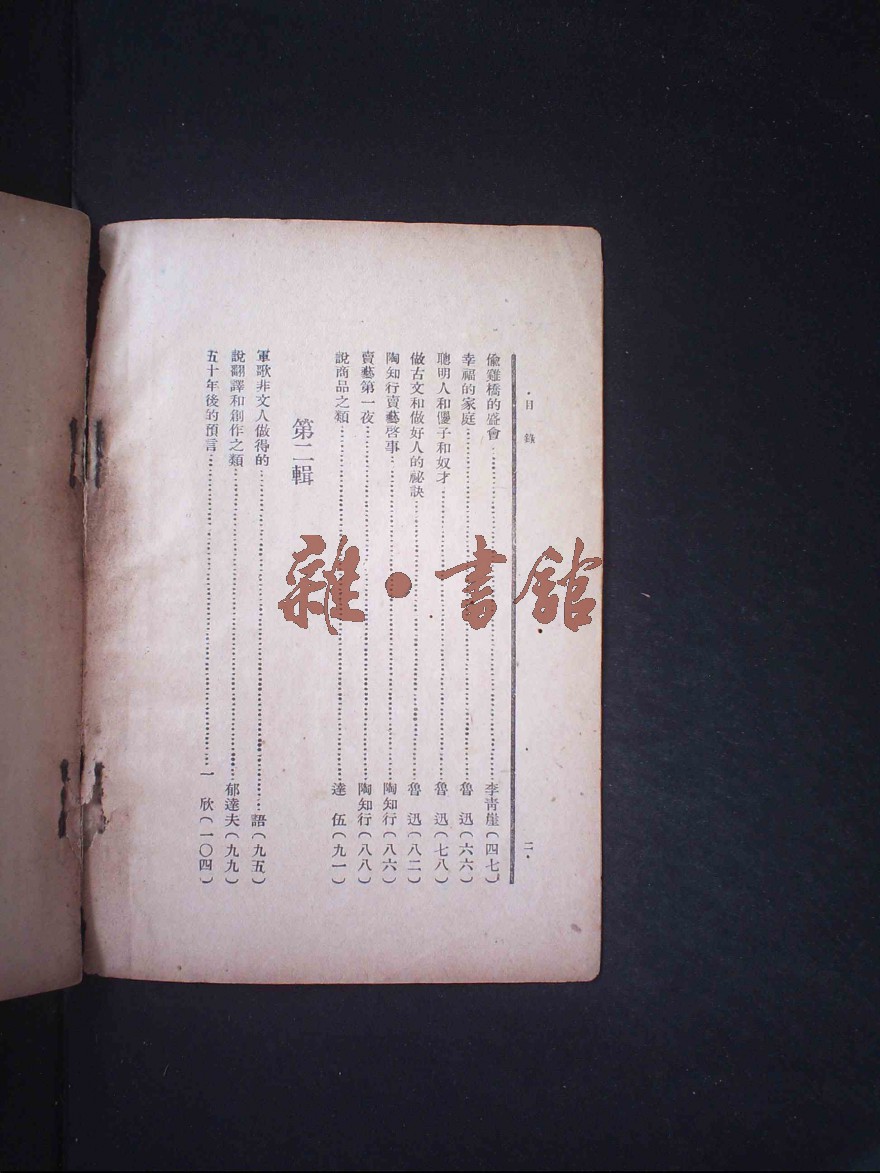 ·目錄 二·
偸雞橋的盛會……李靑崖(四七)
幸福的家庭……魯迅(六六)
聰明人和儍子和奴才……魯迅(七八)
做古文和做好人的祕訣……魯迅(八二)
陶知行賣藝啓事……陶知行(八六)
賣藝第一夜……陶知行(八八)
說商品之類……達伍(九一)
第二輯
軍歌非文人做得的……語(九五)
說翻譯和創作之類……郁達夫(九九)
五十年後的預言……一欣(一〇四)
雜·書館